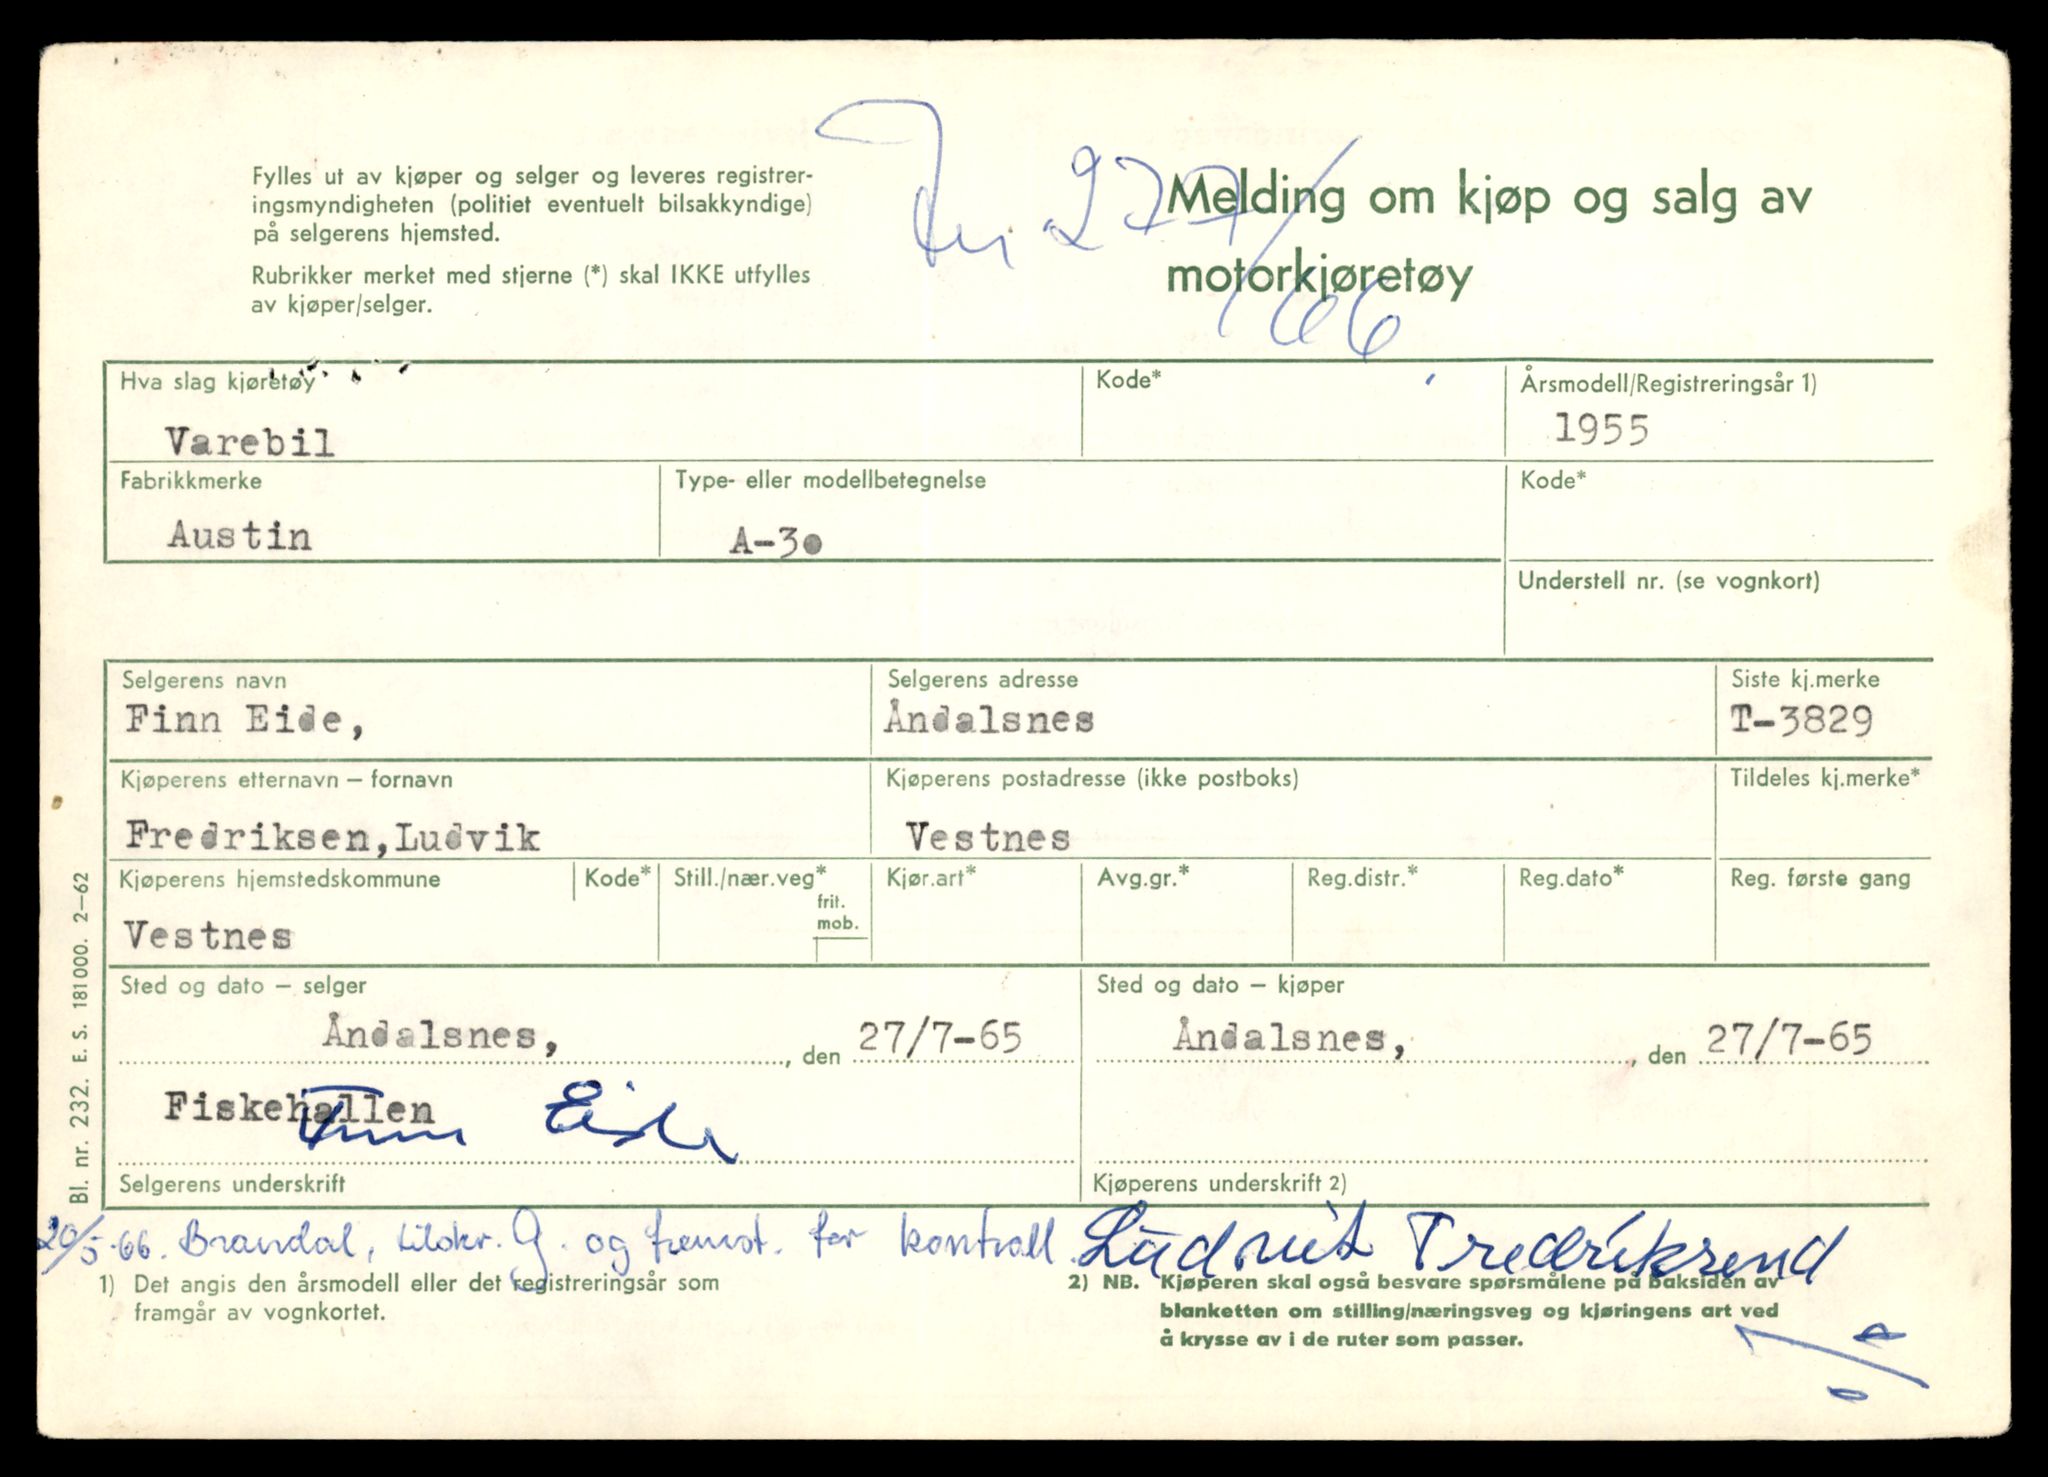 Fylles ut av kjøper og selger og leveres registrer-
ingsmyndigheten (politiet eventuelt bilsakkyndige)
på selgerens hjemsted.
Rubrikker merket med stjerne (*) skal IKKE utfylles
av kjøper/selger.
277/66
Melding om kjøp og salg av
motorkjøretøy
Hva slag kjøretøy
Kode*
Årsmodell/Registreringsår 1)
Varebil
1955
Fabrikkmerke
Type- eller modellbetegnelse
Kode*
Austin
A-30
Understell nr. (se vognkort)
Selgerens navn
Selgerens adresse
Siste kj.merke
Finn Eide,
Åndalsnes
T-3829
Kjøperens etternavn – fornavn
Kjøperens postadresse (ikke postboks)
Tildeles kj.merke*
Fredriksen,Ludvik
Vestnes
Kjøperens hjemstedskommune
Kode*
Still./nær.veg*
frit.
mob.
Kjør.art*
Avg.gr.*
Reg.distr.*
Reg.dato*
Reg. første gang
Vestnes
Sted og dato – selger
Sted og dato – kjøper
Åndalsnes, , den 27/7-65
Åndalsnes, , den 27/7-65
Fiskehallen
Finn Eide
Selgerens underskrift
Kjøperens underskrift 2)
20/5-66. Brandal, tilskr. G. og fremst. for kontroll.
Ludvik Fredriksend
1) Det angis den årsmodell eller det registreringsår som
framgår av vognkortet.
2) NB. Kjøperen skal også besvare spørsmålene på baksiden av
blanketten om stilling/næringsveg og kjøringens art ved
å krysse av i de ruter som passer.
Bl. nr. 232. E. S. 181000. 2–62